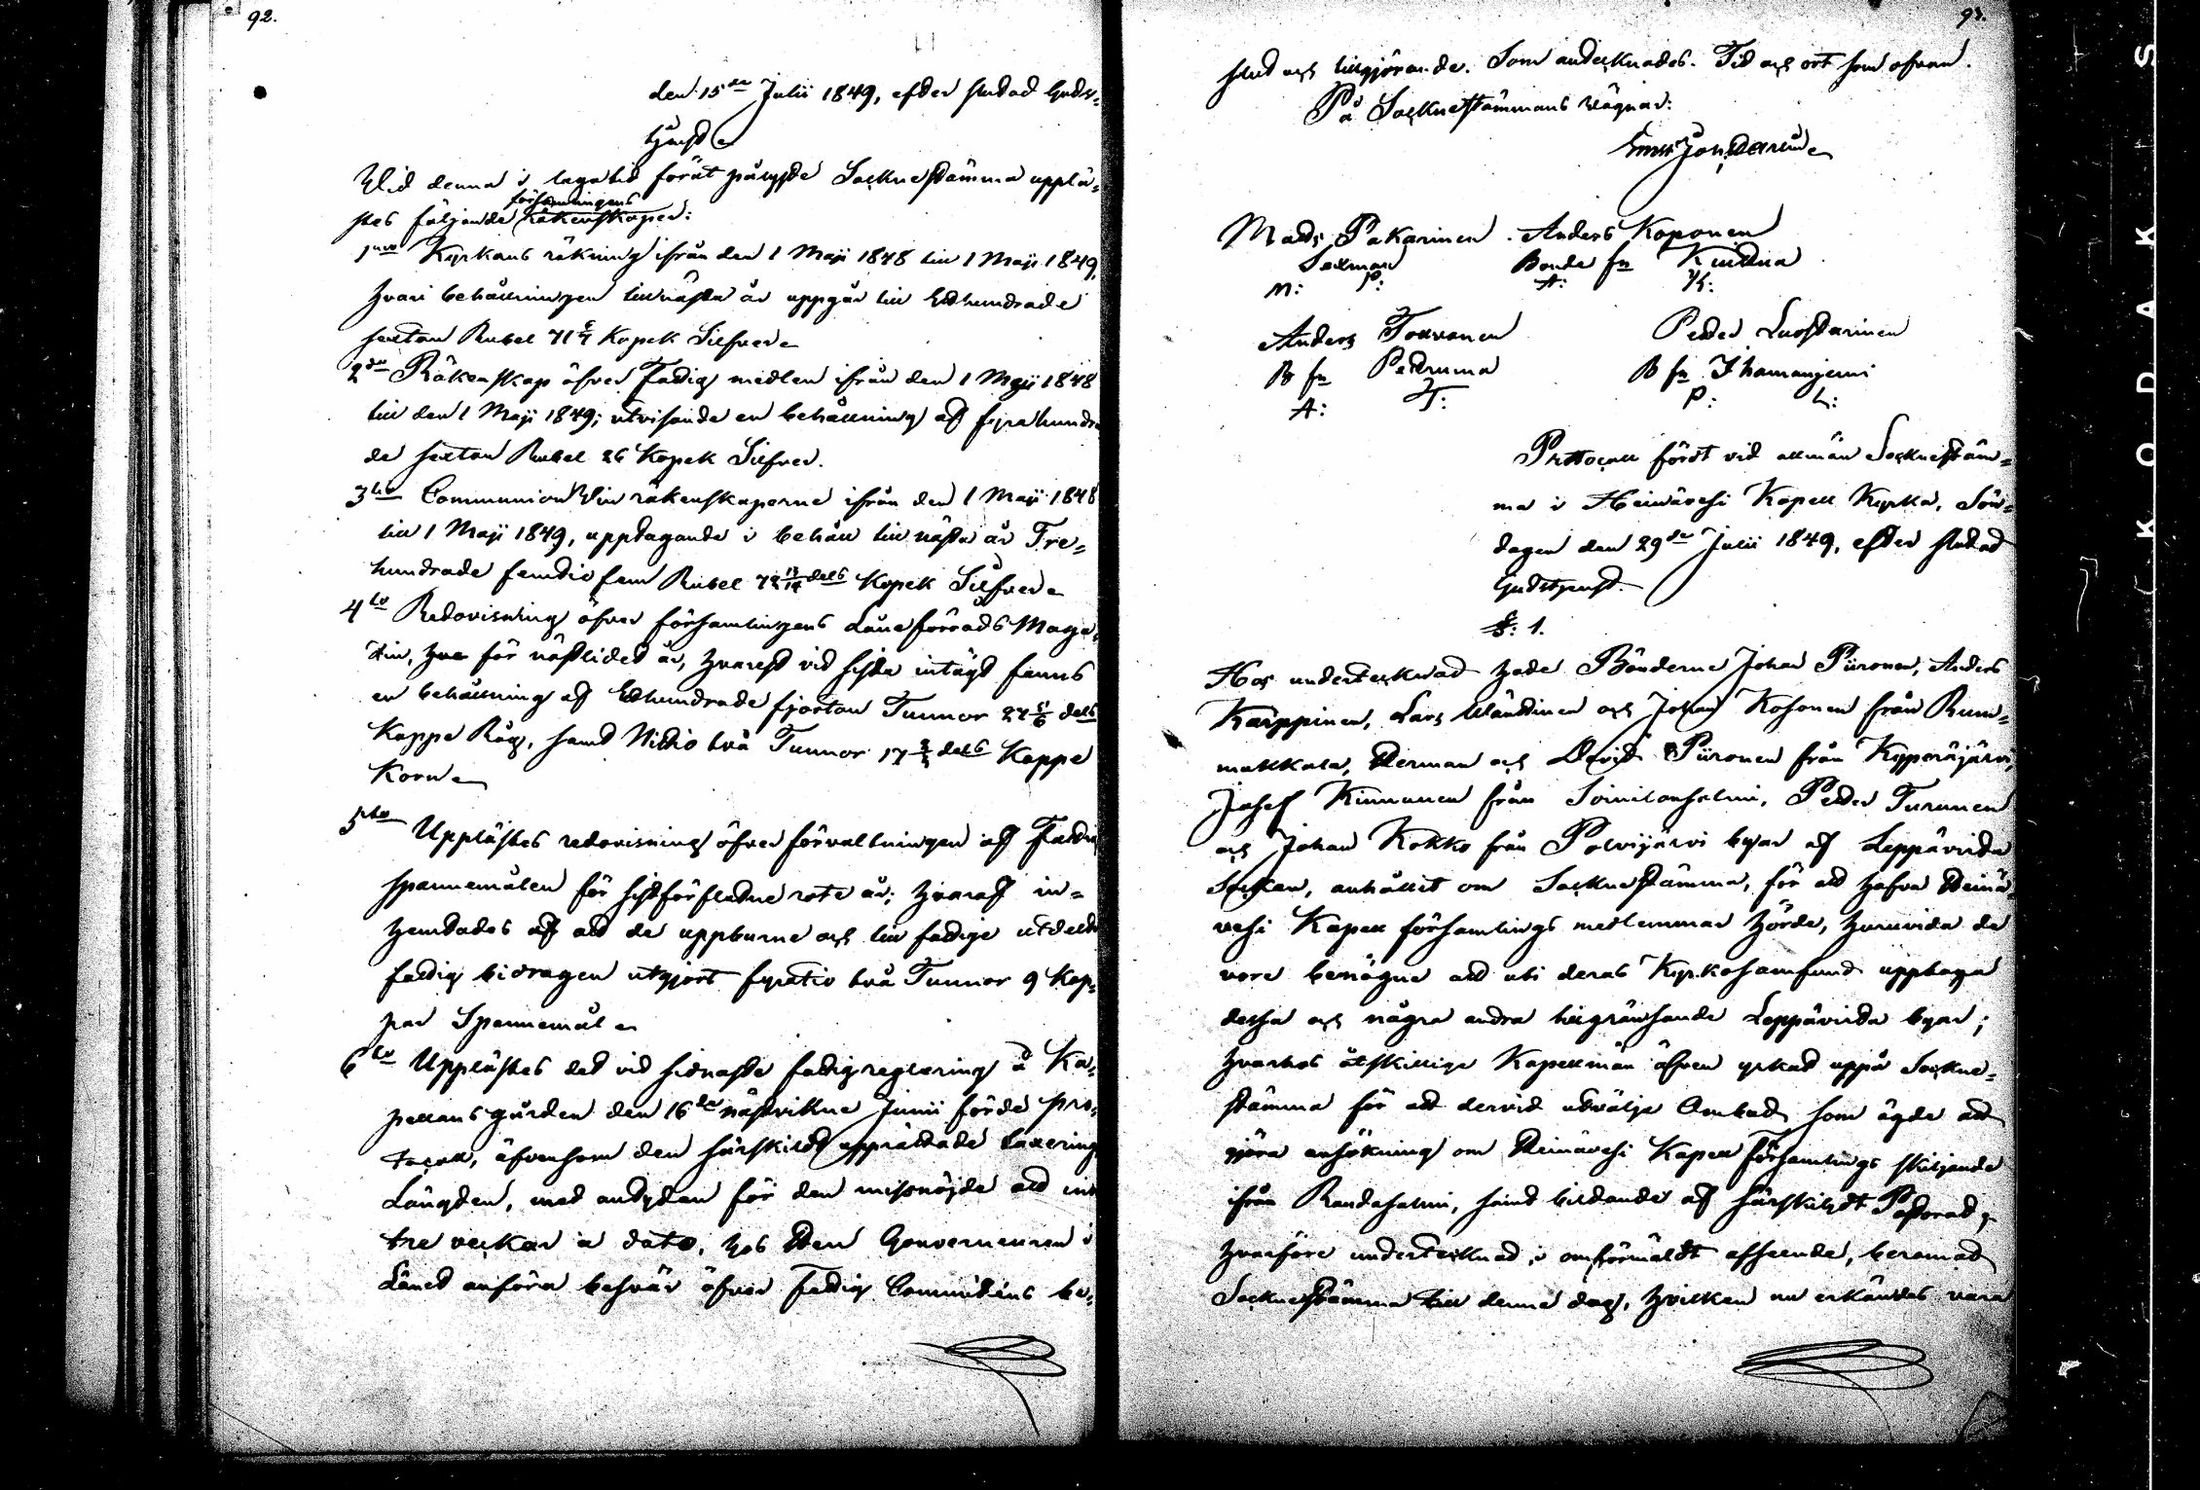 92.
den 15de Julii 1849, efter slutad Guds-
tjenst.
Wid denna i lagatid förut pålyste Socknestämma upplä-
stes följande församlingens räkenskaper:
1mo Kyrkans räkning ifrån den 1 Maji 1848 till 1 Maji 1849,
hvari behållningen till nästa år uppgår till Etthundrade
sexton Rubel 71 5/7 Kopek Silfver.
2do Räkenskap öfver Fattig medlen ifrån den 1 Maji 1848
till den 1 Maji 1849; utvisande en behållning af fyrahundra-
de sexton Rubel 26 Kopek Silfver.
3tio Communion Vin räkenskaperne ifrån den 1 Maji 1848
till 1 Maji 1849, upptagande i behåll till nästa år Tre-
hundrade femtio fem Rubel 72 13/14 dels Kopek Silfver.
4to Redovisning öfver församlingens Låne förråds Maga-
zin, för nästlidet år, hvarest vid sista intägt fanns
en behållning af Etthundrade fjorton Tunnor 27 5/6 dels
Kappe Råg, samt Nittio två Tunnor 17 dels Kappe
Korn.
5to Upplästes redovisning öfver förvaltningen af Fattig
spannemålen för sistförflutne rote år; hvaraf in-
hemtades af att de uppburne och till fattige utdelte
fattig bidragen utgjort fyratio två Tunnor 9 Kap-
par Spannemål.
6to Upplästes det vid sidnaste fattigreglering å Ka-
pellansgården den 16de nästvikne Junii förde pro-
tocoll, äfvensom den särskildt upprättade taxering
Längden, med antydan för den missnöjde att inom
tre veckor a dato, hos Herr Gouverneuren i
Länet anföra besvär öfver Fattig Committéns be-
93.
slut och tillgjörande. Som antecknades. Tid och ort som ofvan.
På Sockne stämmans vägnar:
Mats Pakarinen. Anders Koponen
Sexman Bonde fn
M: P: A: K:
Anders Petter Luostarinen
B fn Petruma B fn Ihamaniemi
A: T: P: L:
Protocoll fördt vid allmän Sockne stäm-
ma i Heinävesi Kapell Kyrka, Sön-
dagen den 29de Julii 1849, efter slutad
Gudstjenst.
§: 1.
Hos undertecknad hade Bönderne Johan Piironen, Anders
Karppinen, Lars och Johan Kosonen från Rum-
mukkala, Herman och David Piironen från Kypäräjärvi,
Josef Kinnunen från Soinilansalmi, Petter Turunen
och Johan Kokko från Polvijärvi byar af Leppävirta
Socken, anhållit om Sockne stämma, för att hafva Heinä-
vesi Kapell församlings medlemmar hörde, huruvida de
vore benägne att uti deras Kyrkosamfund upptaga
dessa och några andra tillgränsande Leppävirta byar;
hvarhos åtskillige Kapellmän äfven yrkat uppå Sockne-
stämma för att dervid utvälja Ombud, som ägde att
göra ansökning om Heinävesi Kapell församlings skiljande
ifrån Randasalmi, samt bildande af särskildt Pastorat;
hvarföre undertecknad, i omförmäldt afseende, beramat
Sockne stämma till denne dag, hvilken nu erkändes vara
KODAK S